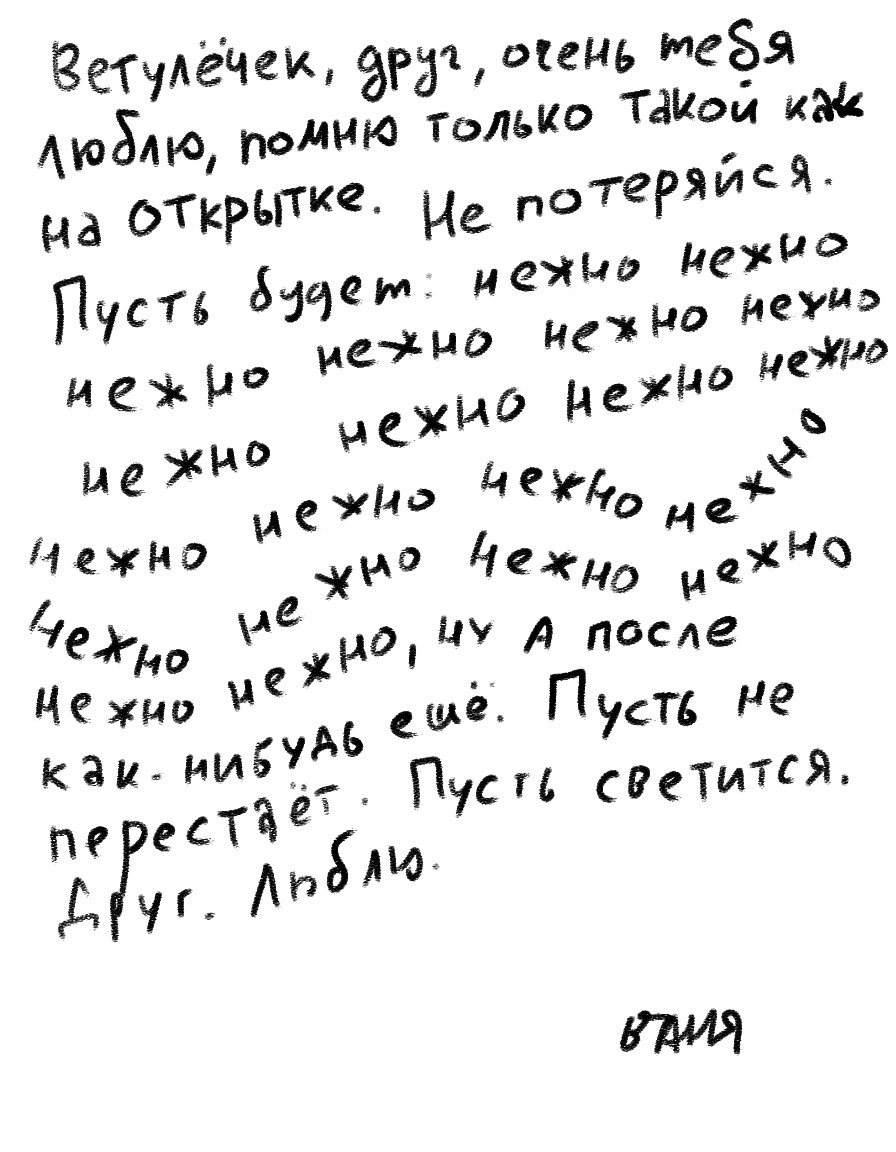 Ветулёчек, друг, очень тебя
люблю, помню только такой как
на открытке. Не потеряйся.
Пусть будет: нежно нежно
нежно нежно нежно нежно
нежно нежно нежно нежно
нежно нежно нежно нежно
нежно нежно нежно нежно
нежно нежно, ну А после
как-нибудь ещё. Пусть не
перестаёт. Пусть светится.
Друг. Люблю.
ВАНЯ